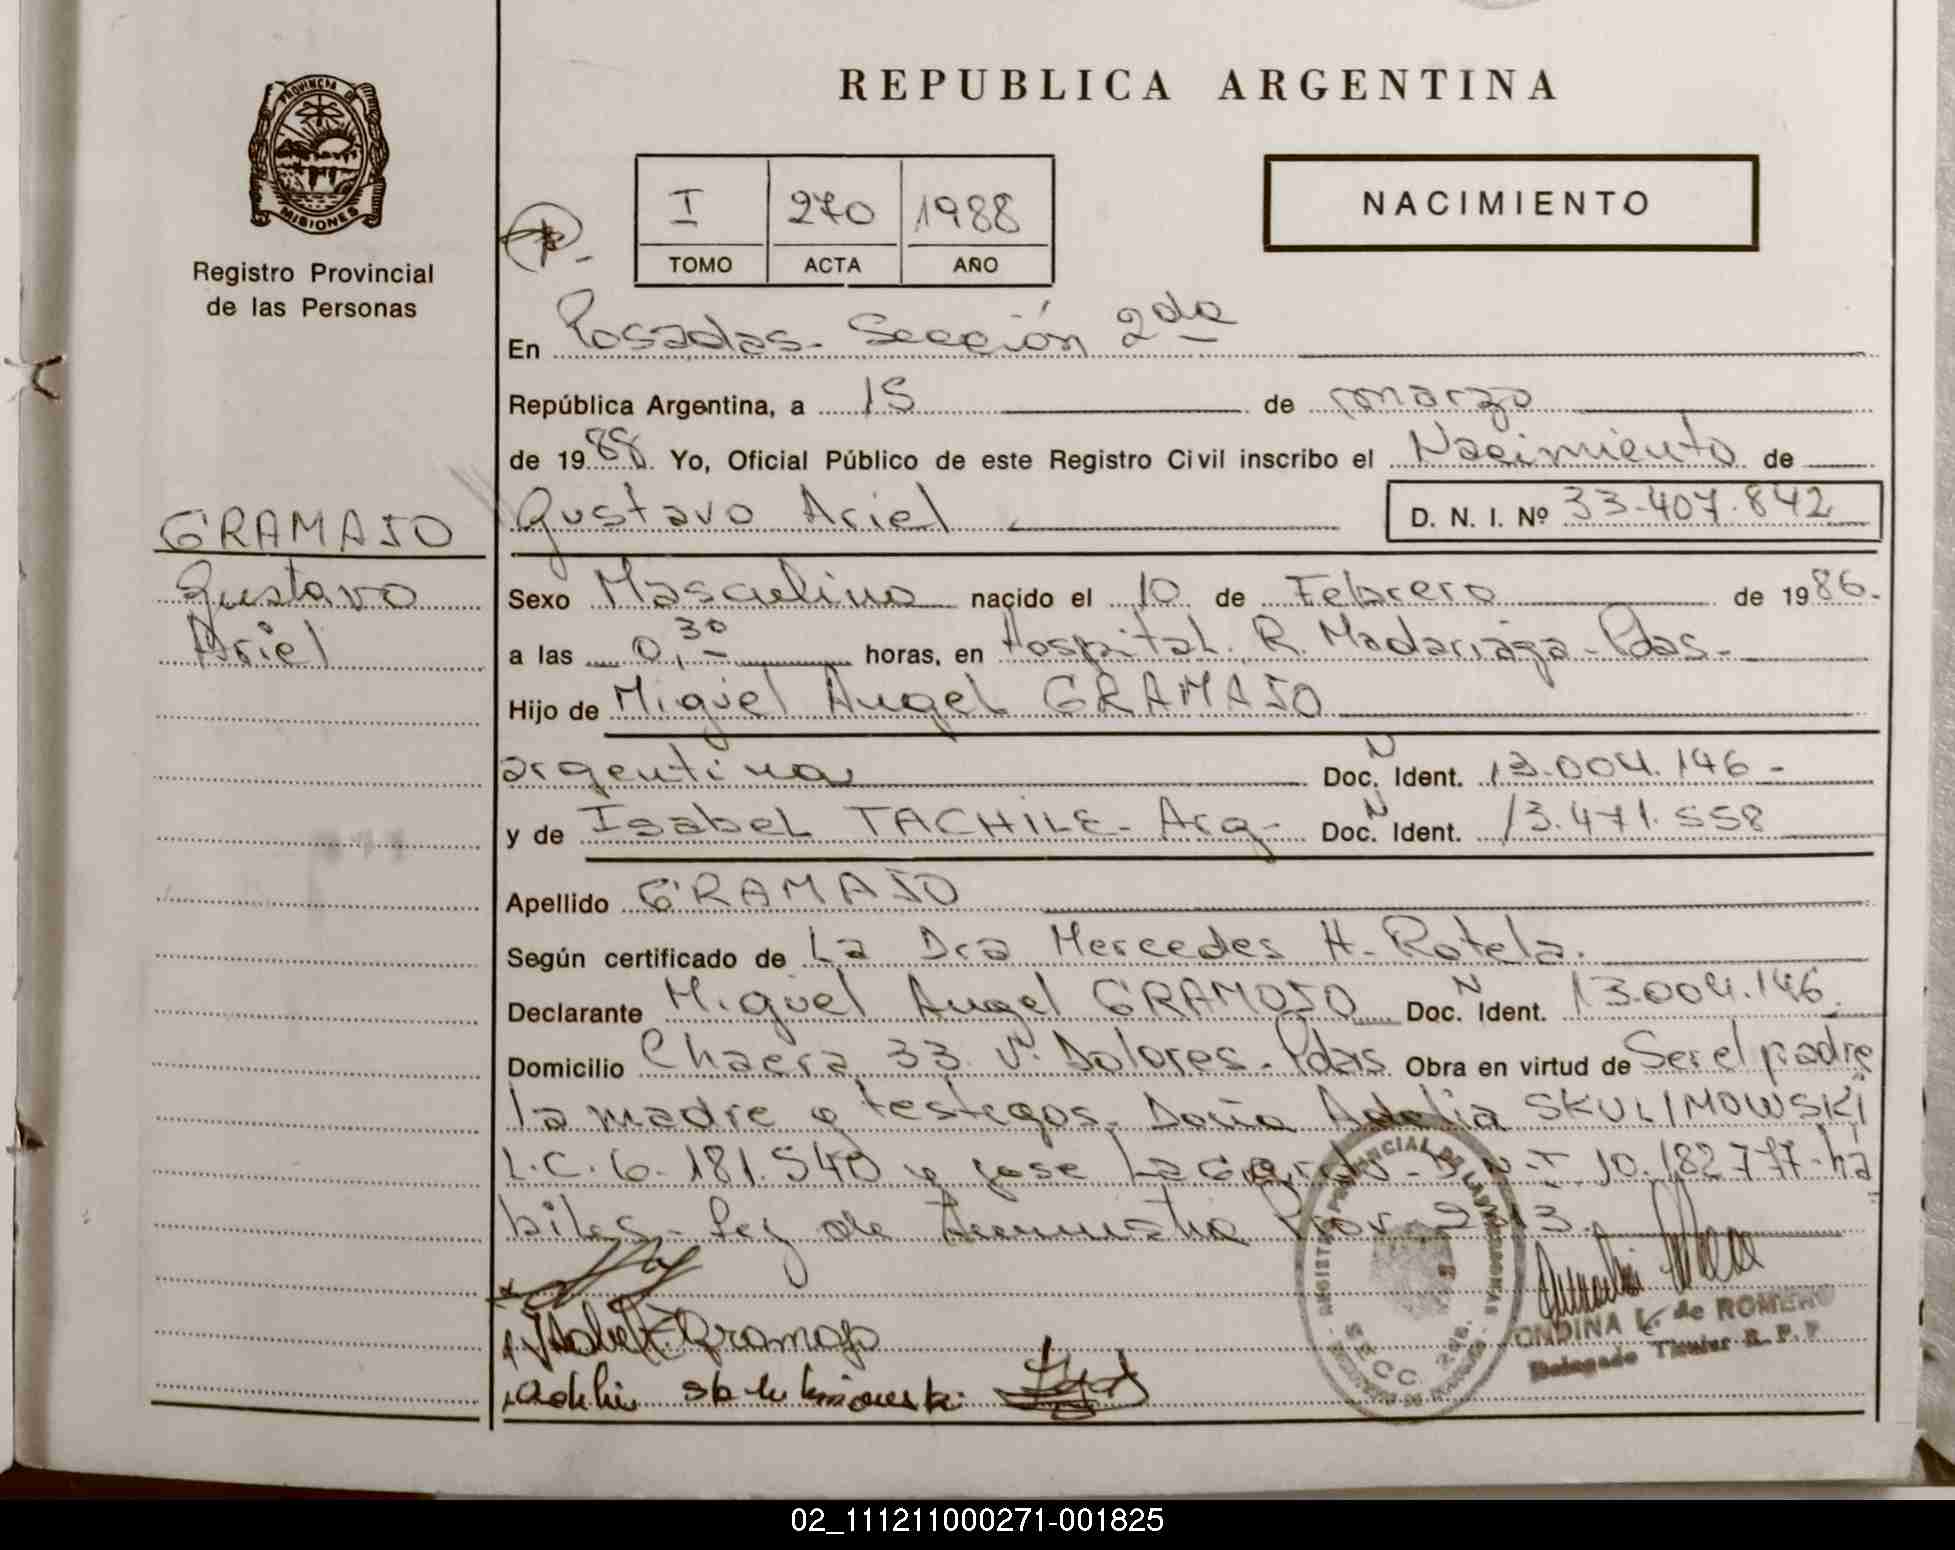 PROVINCIA DE
MISIONES
Registro Provincial
de las Personas
REPUBLICA ARGENTINA
NACIMIENTO
I 270 1988
TOMO ACTA AÑO
En Posadas - Sección 2da
República Argentina, a 15 de marzo
de 1988. Yo, Oficial Público de este Registro Civil inscribo el Nacimiento de
GRAMAJO
Gustavo
Ariel
Gustavo Ariel D. N. I. Nº 33.407.842
Sexo Masculino nacido el 10 de Febrero de 1986.
a las 0,30 horas, en Hospital. R. Madariaga - Pdas -
Hijo de Miguel Angel GRAMAJO
argentina Doc. N Ident. 13.004.146 -
y de Isabel TACHILE - Arg - Doc. N Ident. 13.471.558
Apellido GRAMAJO
Según certificado de La Dra Mercedes H. Rotela.
Declarante Miguel Angel GRAMOJO Doc. N Ident. 13.004.146.
Domicilio Chacra 33. Vª. Dolores - Pdas. Obra en virtud de Ser el padre
la madre y testigos, Doña Adelia SKULIMOWSKI
L.C. 6.181.540 y jose D.N.I. 10.182777 - há
biles - Ley de Prov. 2
Isabel T. Gramajo
REGISTRO PROVINCIAL DE LAS PERSONAS
SECC. 2da.
ONDINA de ROMERO
Delegado Titular R. P. P.
02_111211000271-001825